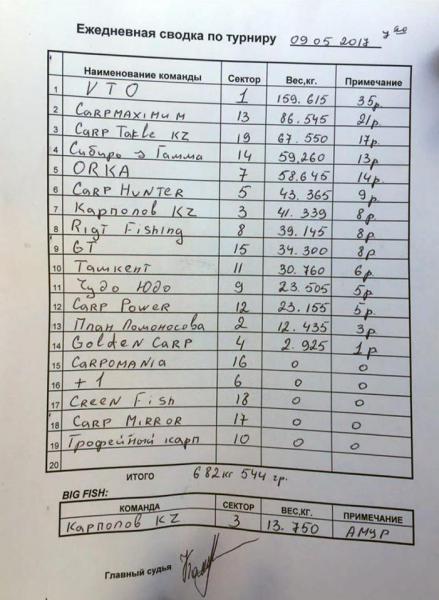 Ежедневная сводка по турниру 09 05 2017 7 00
Наименование команды Сектор Вес,кг. Примечание
1 VTO 1 159.615 35р.
2 CARPMAXIMUM 13 86.545 21р.
3 CARP Takle KZ 19 67.550 17р.
4 Сибирь-Гамма 14 59,260 13р.
5 ORKA 7 58.645 14р.
6 CARP HUNTER 5 43.365 9р.
7 Карполов KZ 3 41.339 8р.
8 RIGT FISHING 8 39.145 8р.
9 GT 15 34.300 8р
10 Ташкент 11 30.760 6р.
11 Чудо Юдо 9 23.505 5р.
12 CARP POWER 12 23.155 5р.
13 План Ломоносова 2 12.435 3р
14 GOLDEN CARP 4 2.925 1р
15 CARPOMANIA 16 0 0
16 +1 6 0 0
17 CREEN FISH 18 0 0
18 CARP MIRROR 17 0 0
19 Трофейный карп 10 0 0
20
ИТОГО 682кг 544 гр.
BIG FISH:
КОМАНДА СЕКТОР ВЕС,КГ. ПРИМЕЧАНИЕ
Карполов KZ 3 13.750 АМУР
Главный судья